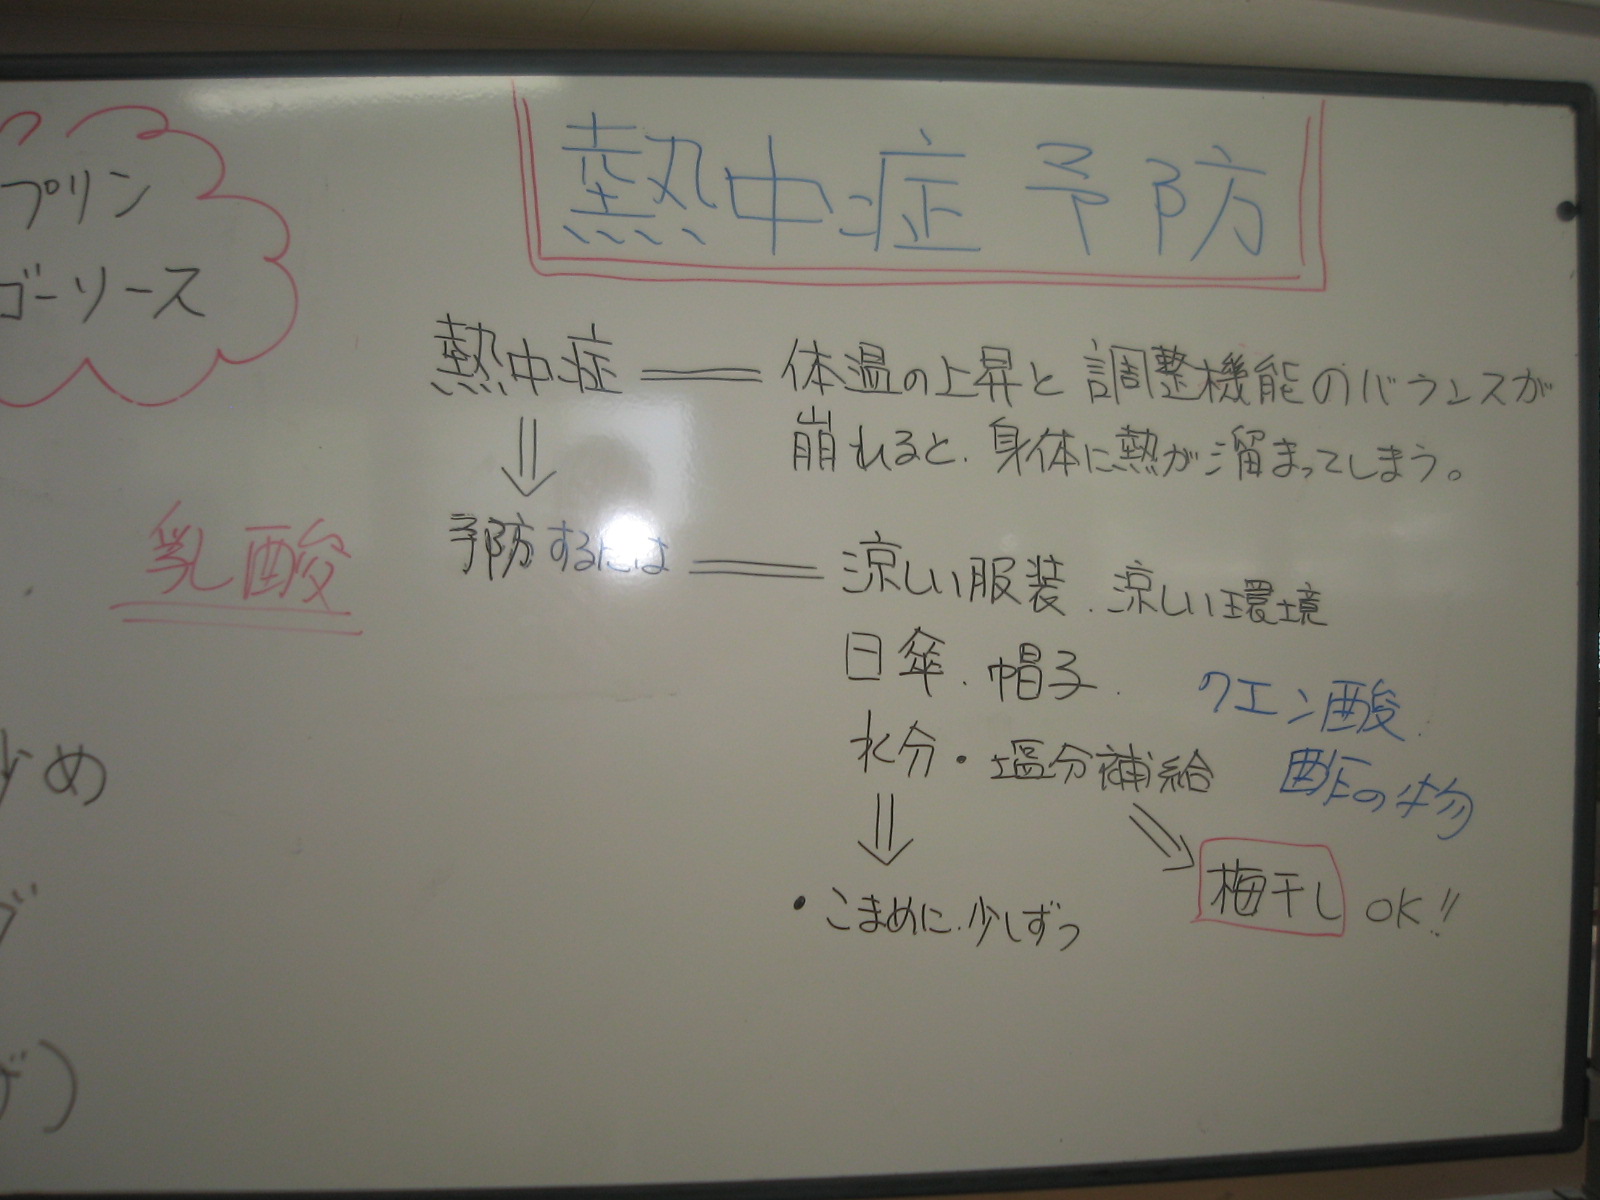 熱中症 予防
プリン
ゴーソース
熱中症 == 体温の上昇と調整機能のバランスが
崩れると、身体に熱が溜まってしまう。
⇓
乳酸
予防するには == 涼しい服装、涼しい環境
日傘、帽子、
クエン酸
水分・塩分補給
酢の物
⇓ ⇘
・こまめに、少しずつ
梅干し OK!!
め